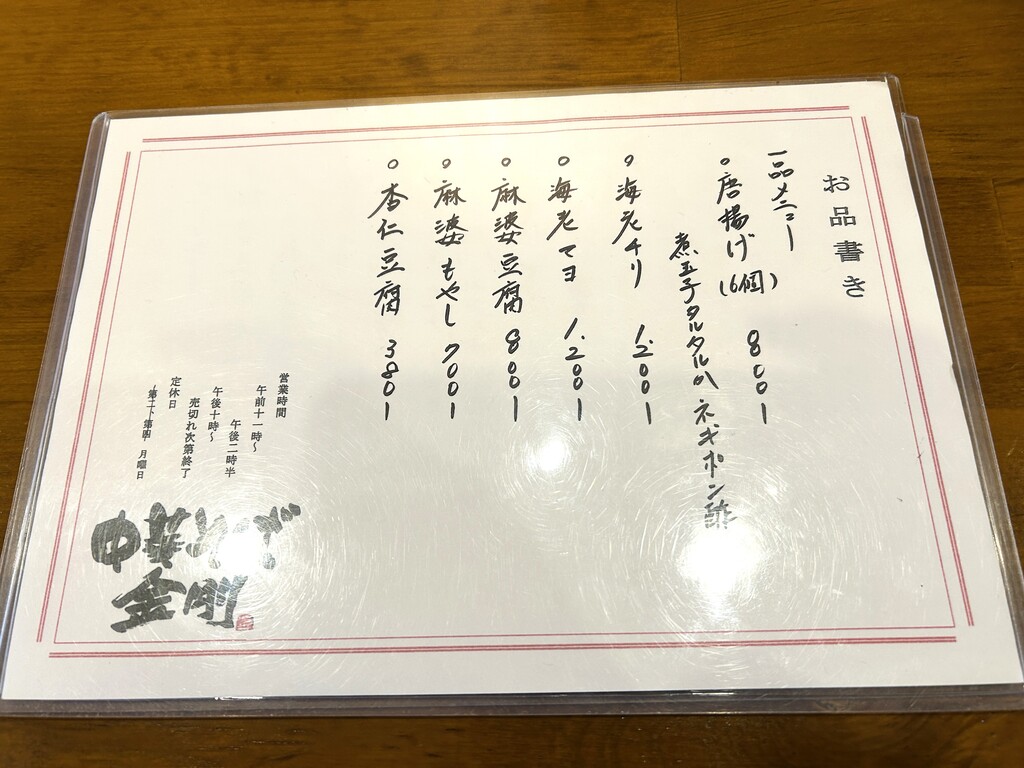 お品書き
一品メニュー
○唐揚げ(6個) 800ー
煮玉子タルタル ネギポン酢
○海老チリ 1.200ー
○海老マヨ 1.200ー
○麻婆豆腐 800ー
○麻婆もやし 700ー
○杏仁豆腐 380ー
営業時間
午前十一時〜
午後二時半
午後十時〜
売切れ次第終了
定休日
第二、第四 月曜日
中華そば
金剛